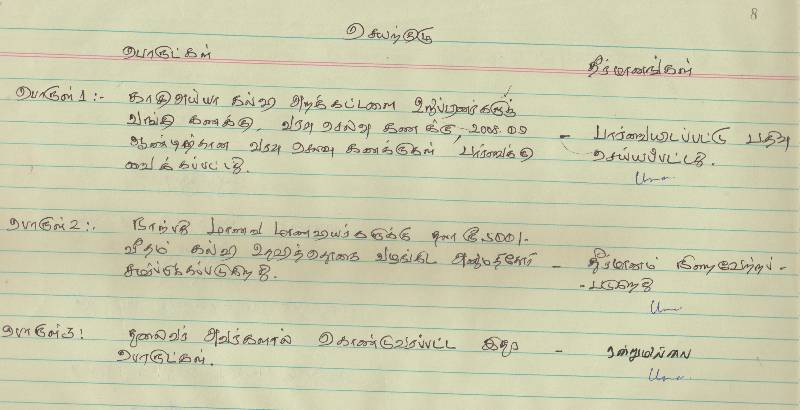 8
செயற்குழு
பொருட்கள்
தீர்மானங்கள்
பொருள் 1:- காதிஅய்யா கல்வி அறக்கட்டளை உறுப்பினர்களுக்கு
வங்கி கணக்கு, வரவு செலவு கணக்கு, 2008-09 - பார்வையிடப்பட்டு பதிவு
ஆண்டிற்கான வரவு செலவு கணக்குகள் பார்வைக்கு செய்யப்பட்டது.
வைக்கப்பட்டது.
பொருள் 2:- நாற்பது மாணவ மாணவியர்களுக்கு தலா ரூ.500/-
வீதம் கல்வி உதவித்தொகை வழங்கிட அனுமதிகோரி - தீர்மானம் நிறைவேற்றப்-
சமர்ப்பிக்கப்படுகிறது. -படுகிறது
பொருள் 3: தலைவர் அவர்களால் கொண்டுவரப்பட்ட இதர - ஏதுமில்லை
பொருட்கள்.